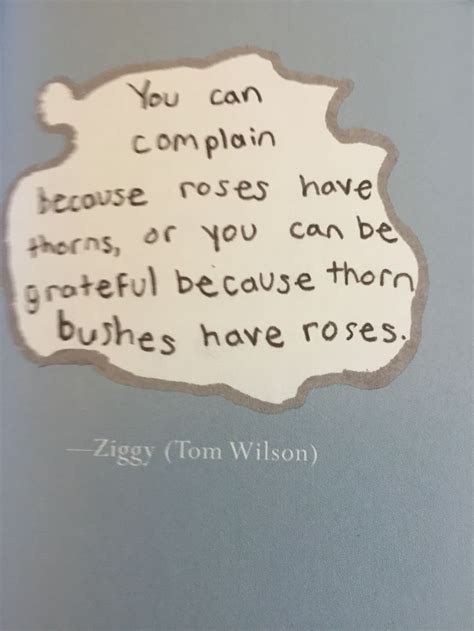 You can
complain
because roses have
thorns, or you can be
grateful because thorn
bushes have roses.
—Ziggy (Tom Wilson)